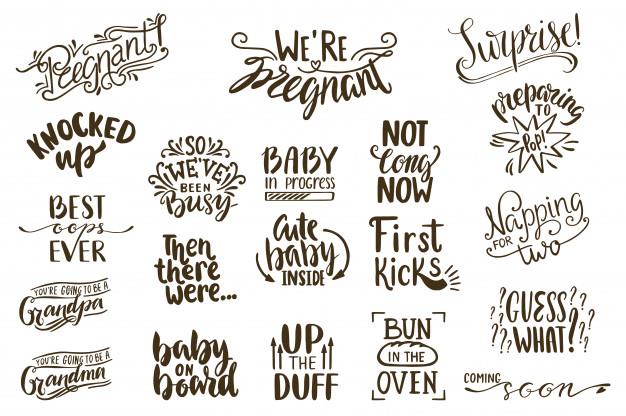 Pregnant!
WE'RE
pregnant
Surprise!
KNOCKED
up
SO
WE'VE
BEEN
Busy
BABY
IN PROGRESS
NOT
long
NOW
preparing
TO
POP!
BEST
oops
EVER
Then
there
were...
Cute
baby
INSIDE
First
Kicks
Napping
FOR
two
YOU'RE GOING TO BE A
Grandpa
YOU'RE GOING TO BE A
Grandma
baby
ON
board
UP
THE
DUFF
BUN
IN THE
OVEN
?GUESS??
??WHAT!??
COMING
soon